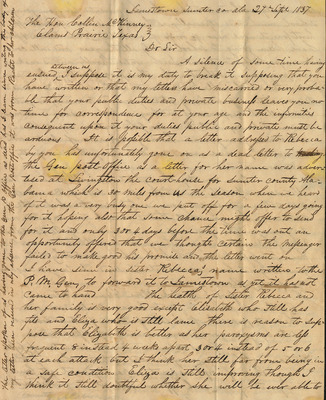 Jamestown Sumter co ala 27 Sept 1837
The Hon Collin McKinney
Clams Prairie Texas
Dr Sir
A silence of some time having
between us
ensued I suppose it is my duty to break it supposing that you
have written or that my letters have miscarried or very proba-
ble that your public duties and private business leaves you no
time for correspondence for at your age and the infirmities
consequent upon it your duties public and private must be
arduous It is possible that a letter addressed to Rebecca
by you has unfortunately gone on as a dead letter to
the Gen post office as a letter for her name was adver
tised at Livingston the court house for Sumter County Ala-
bama which is 20 miles from us the season when we heard
of it was a very busy one we put off for a few days going
for it hoping also that some chance might offer to send
for it and only 3 or 4 days before the time was out an
opportunity offered that we thought certain the messenger
failed to make good his promise and the letter went on
I have since in sister Rebecca's name written to the
P. M. Gen, to forward it to Jamestown as yet it has not
came to hand The health of Sister Rebecca and
her family is very good except Elizabeth who still has
fits and Eliza who is still lame there is reason to sup-
pose that Elizabeth is better as her paroxysms are less
frequent 8 instead 4 weeks apart 3 or 4 instead of 5 or 6
at each attack but I think her still far from being in
a safe condition Eliza is still improving though I
think it still doubtful whether she will be ever able to